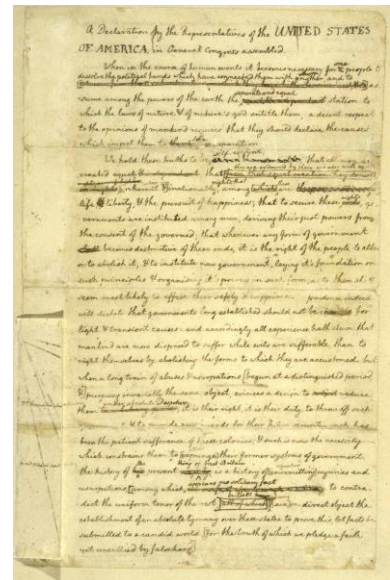 A Declaration by the Representatives of the UNITED STATES
OF AMERICA, in General Congress assembled.
When in the course of human events it becomes necessary for one people to
dissolve the political bands which have connected them with another, and to
assume among the powers of the earth the separate and equal station to
which the laws of nature & of nature's god entitle them, a decent respect
to the opinions of mankind requires that they should declare the causes
which impel them to the separation.
We hold these truths to be self-evident, that all men are
created equal
life & liberty, & the pursuit of happiness; that to secure these rights, go-
vernments are instituted among men, deriving their just powers from
the consent of the governed; that whenever any form of government
becomes destructive of these ends, it is the right of the people to alter
or to abolish it, & to institute new government, laying it's foundation on
such principles & organising it's powers in such form, as to them shall
seem most likely to effect their safety & happiness. prudence indeed
will dictate that governments long established should not be changed for
light & transient causes: and accordingly all experience hath shewn that
mankind are more disposed to suffer while evils are sufferable, than to
right themselves by abolishing the forms to which they are accustomed. but
when a long train of abuses & usurpations [begun at a distinguished period
& pursuing invariably the same object, evinces a design to reduce
them it is their right, it is their duty, to throw off such
& to provide new guards for their future security. such has
been the patient sufferance of these colonies; & such is now the necessity
which constrains them to [expunge] their former systems of government.
the history of the present king of Great Britain is a history of injuries and
usurpations, [among which, appears no solitary fact to contra-
dict the uniform tenor of the rest in direct object the
establishment of an absolute tyranny over these states. to prove this, let facts be
submitted to a candid world, [for the truth of which we pledge a faith
yet unsullied by falsehood]